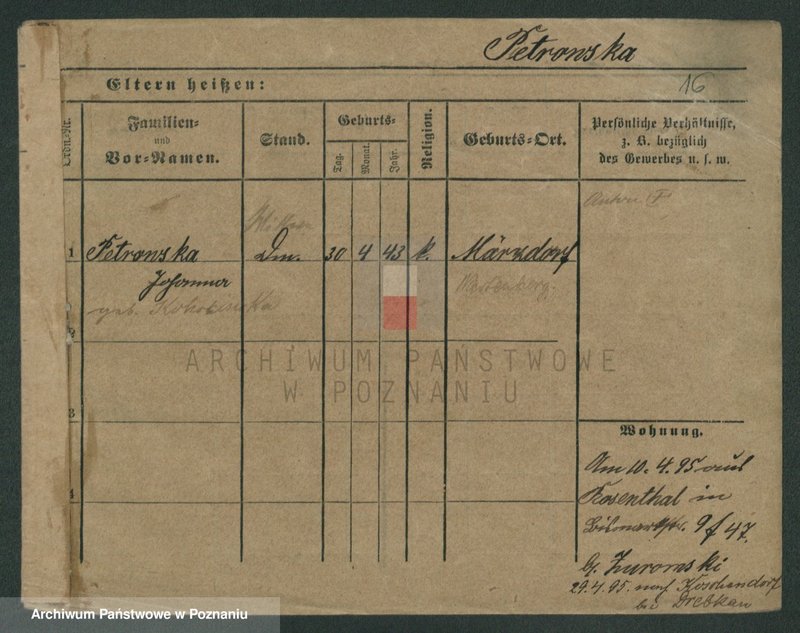 Petronska
16
Eltern heißen:
Ordn.-Nr.
Familien-
und
Vor-Namen.
Stand.
Geburts-
Tag.
Monat.
Jahr.
Religion.
Geburts-Ort.
Persönliche Verhältnisse,
z. B. bezüglich
des Gewerbes u. s. w.
1 Petronska Dm. 30 4 43 k. Märzdorf
Johanna
geb.
2
ARCHIWUM PAŃSTWOWE
W POZNANIU
3
4
Wohnung.
Am 10. 4. 95 aus
Rosenthal in
Bismarckstr. 9 f 47.
b/. Zuromski
29. 4. 95. nach Koschendorf
bei Drebkau
Archiwum Państwowe w Poznaniu